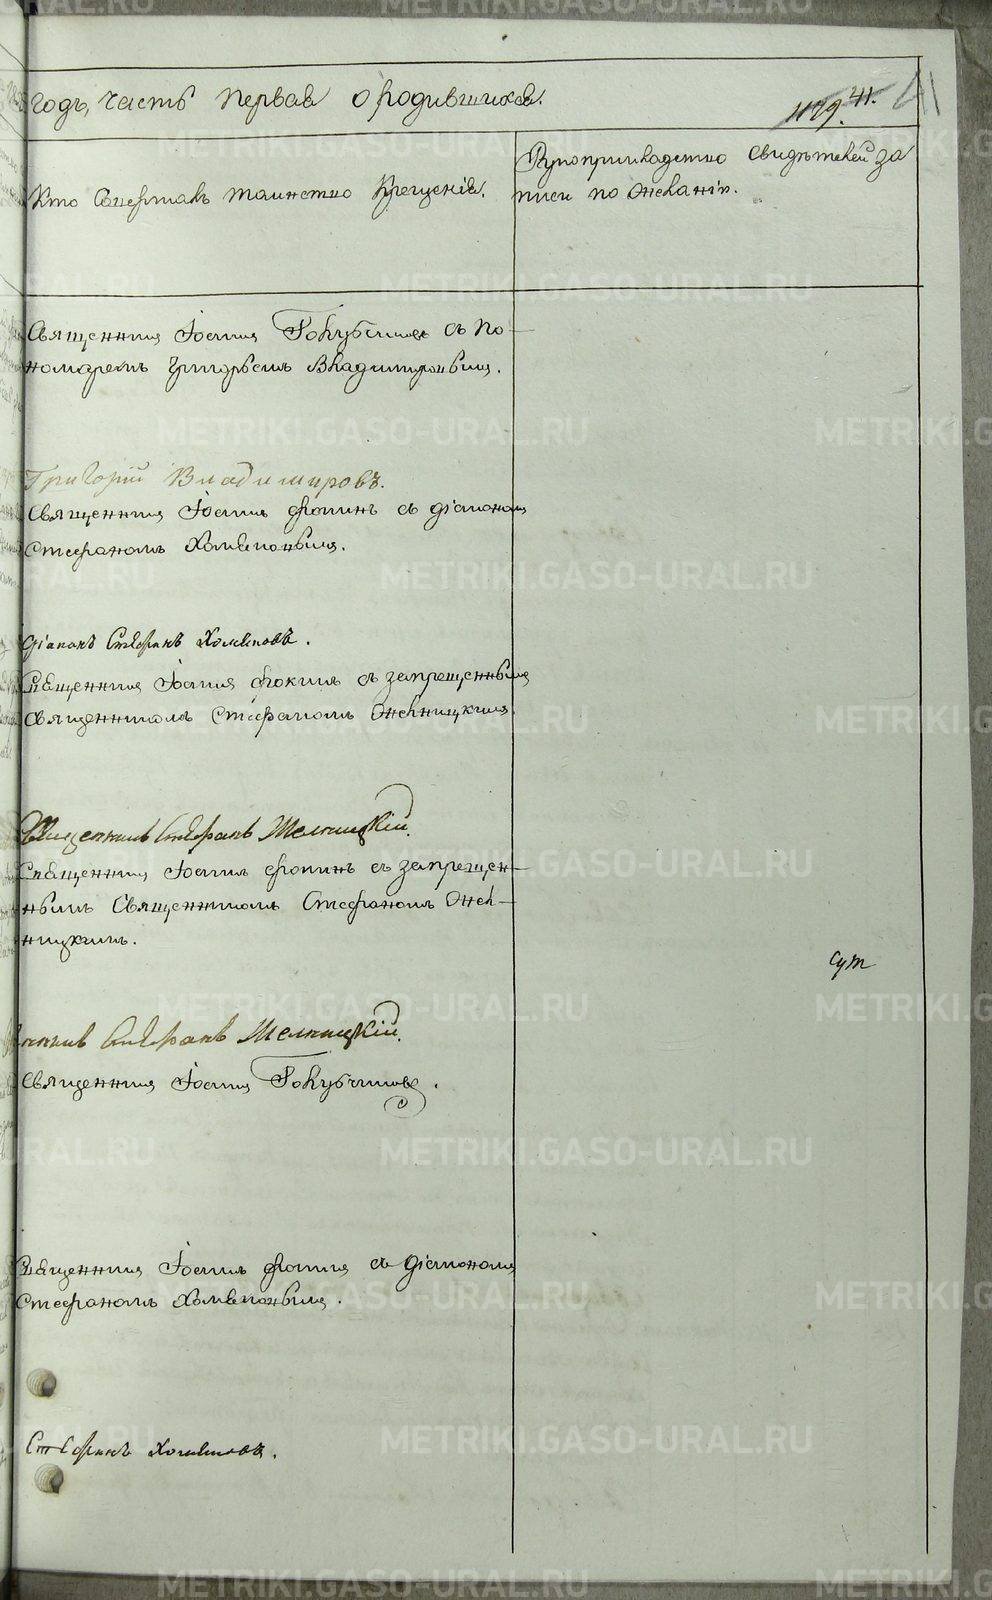 годъ, часть первая о родившихся.
1179. 41. 41
Кто совершалъ таинство крещенія.
Рукоприкладство свидѣтелей за
писи по желанію.
Священникъ Іоаннъ Голубчиковъ съ по-
номаремъ Григорьемъ Владимировымъ.
Григорій Владимировъ.
Священникъ Іоаннъ Фокинъ съ діакономъ
Стефаномъ Хомяковымъ.
Діаконъ Стефанъ Хомяковъ.
Священникъ Іоаннъ Фокинъ съ запрещеннымъ
Священникомъ Стефаномъ Желницкимъ.
Священникъ Стефанъ Желницкій.
Священникъ Іоаннъ Фокинъ съ запрещен-
нымъ Священникомъ Стефаномъ Жел-
ницкимъ.
сут
Стефанъ Желницкій.
Священникъ Іоаннъ Голубчиковъ.
Священникъ Іоаннъ Фокинъ съ діакономъ
Стефаномъ Хомяковымъ.
Стефанъ Хомяковъ.
METRIKI.GASO-URAL.RU